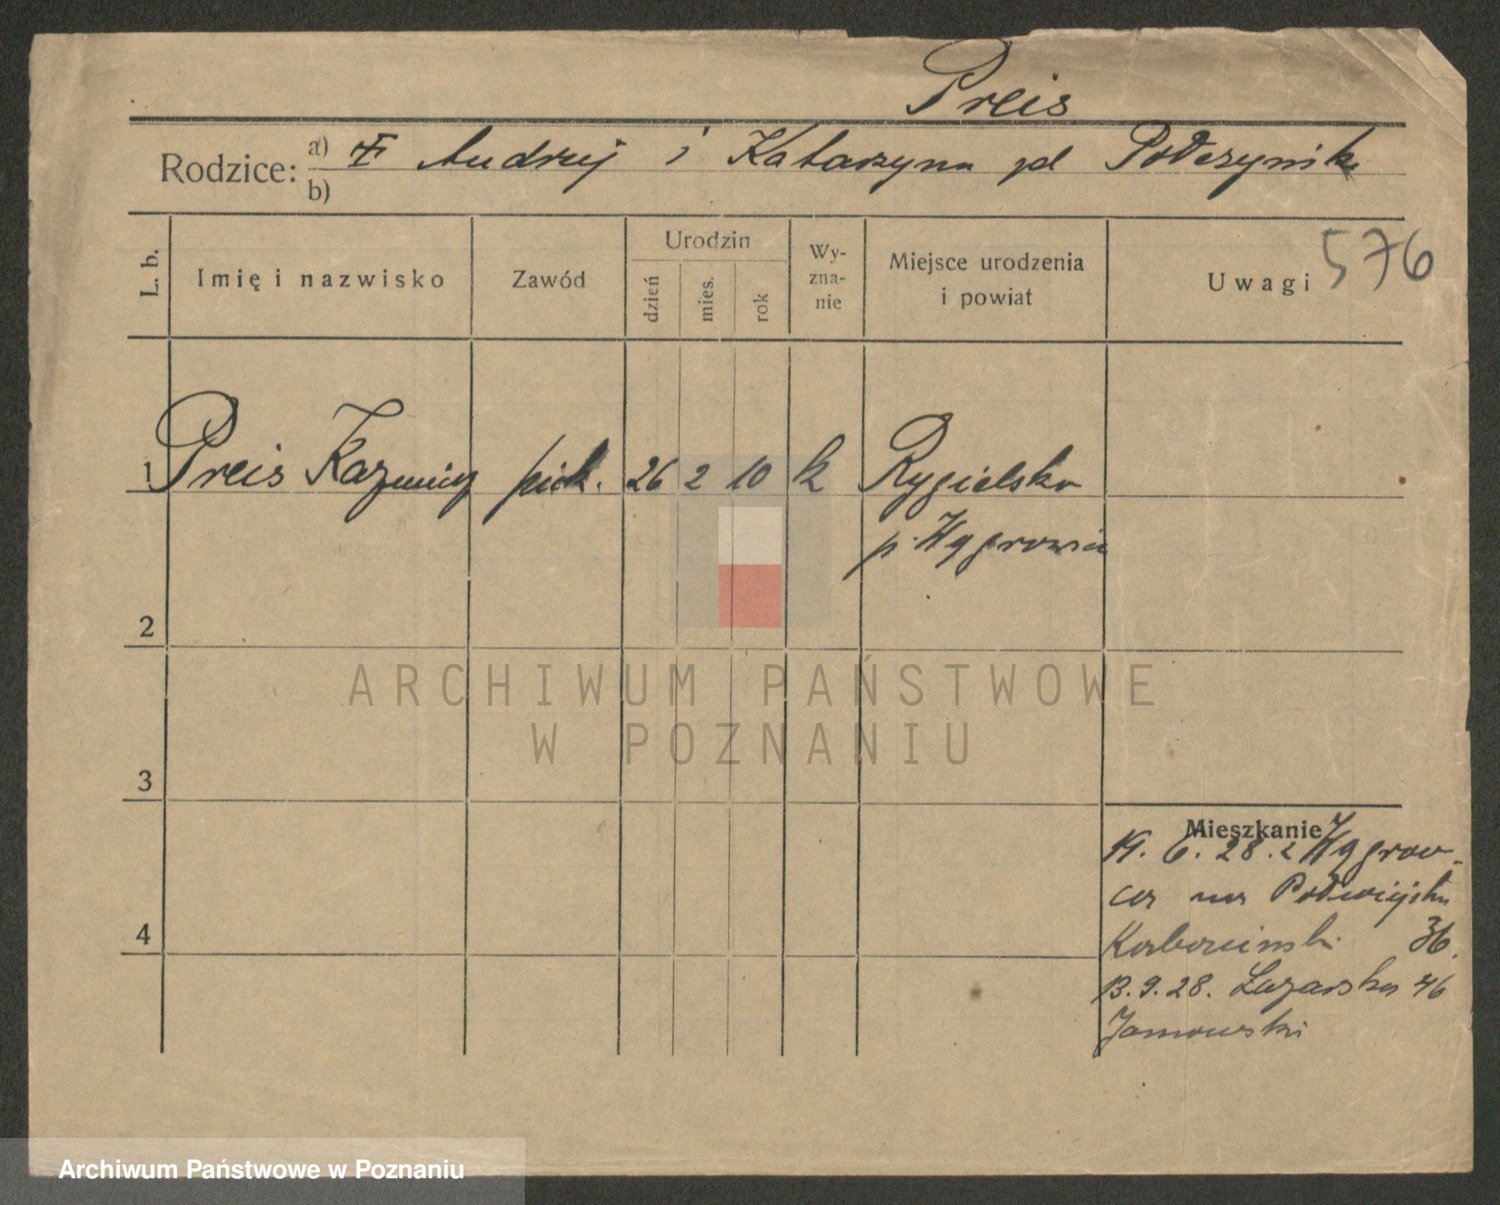 Preis
Rodzice: a) Andrzej i Katarzyna
b)
L. b.
Imię i nazwisko
Zawód
Urodzin
dzień
mies.
rok
Wy-
zna-
nie
Miejsce urodzenia
i powiat
Uwagi
576
1 Preis Kazimierz piek. 26 2 10 k Rygielska
p. Wągrowiec
2
3
4
Mieszkanie
19. 6. 28. z Wągrow-
ca na
36.
13. 9. 28. Łazarska 46
Janowski
ARCHIWUM PAŃSTWOWE
W POZNANIU
Archiwum Państwowe w Poznaniu